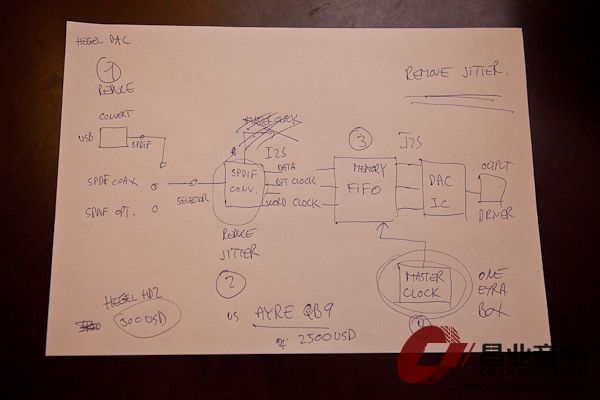 HEGEL DAC
1
REDUCE
REMOVE JITTER.
CONVERT
USB
SPDIF
MASTER CLOCK
I2S
3
I2S
SPDIF COAX
SELECTOR
SPDIF
CONV.
DATA
BIT CLOCK
WORD CLOCK
MEMORY
FIFO
DAC
IC
OUTPUT
DRIVER.
SPDIF OPT.
REDUCE
JITTER
2
MASTER
CLOCK
ONE
EXTRA
BOX
4
HEGEL HD2
500USD
US AYRE QB9
2500USD